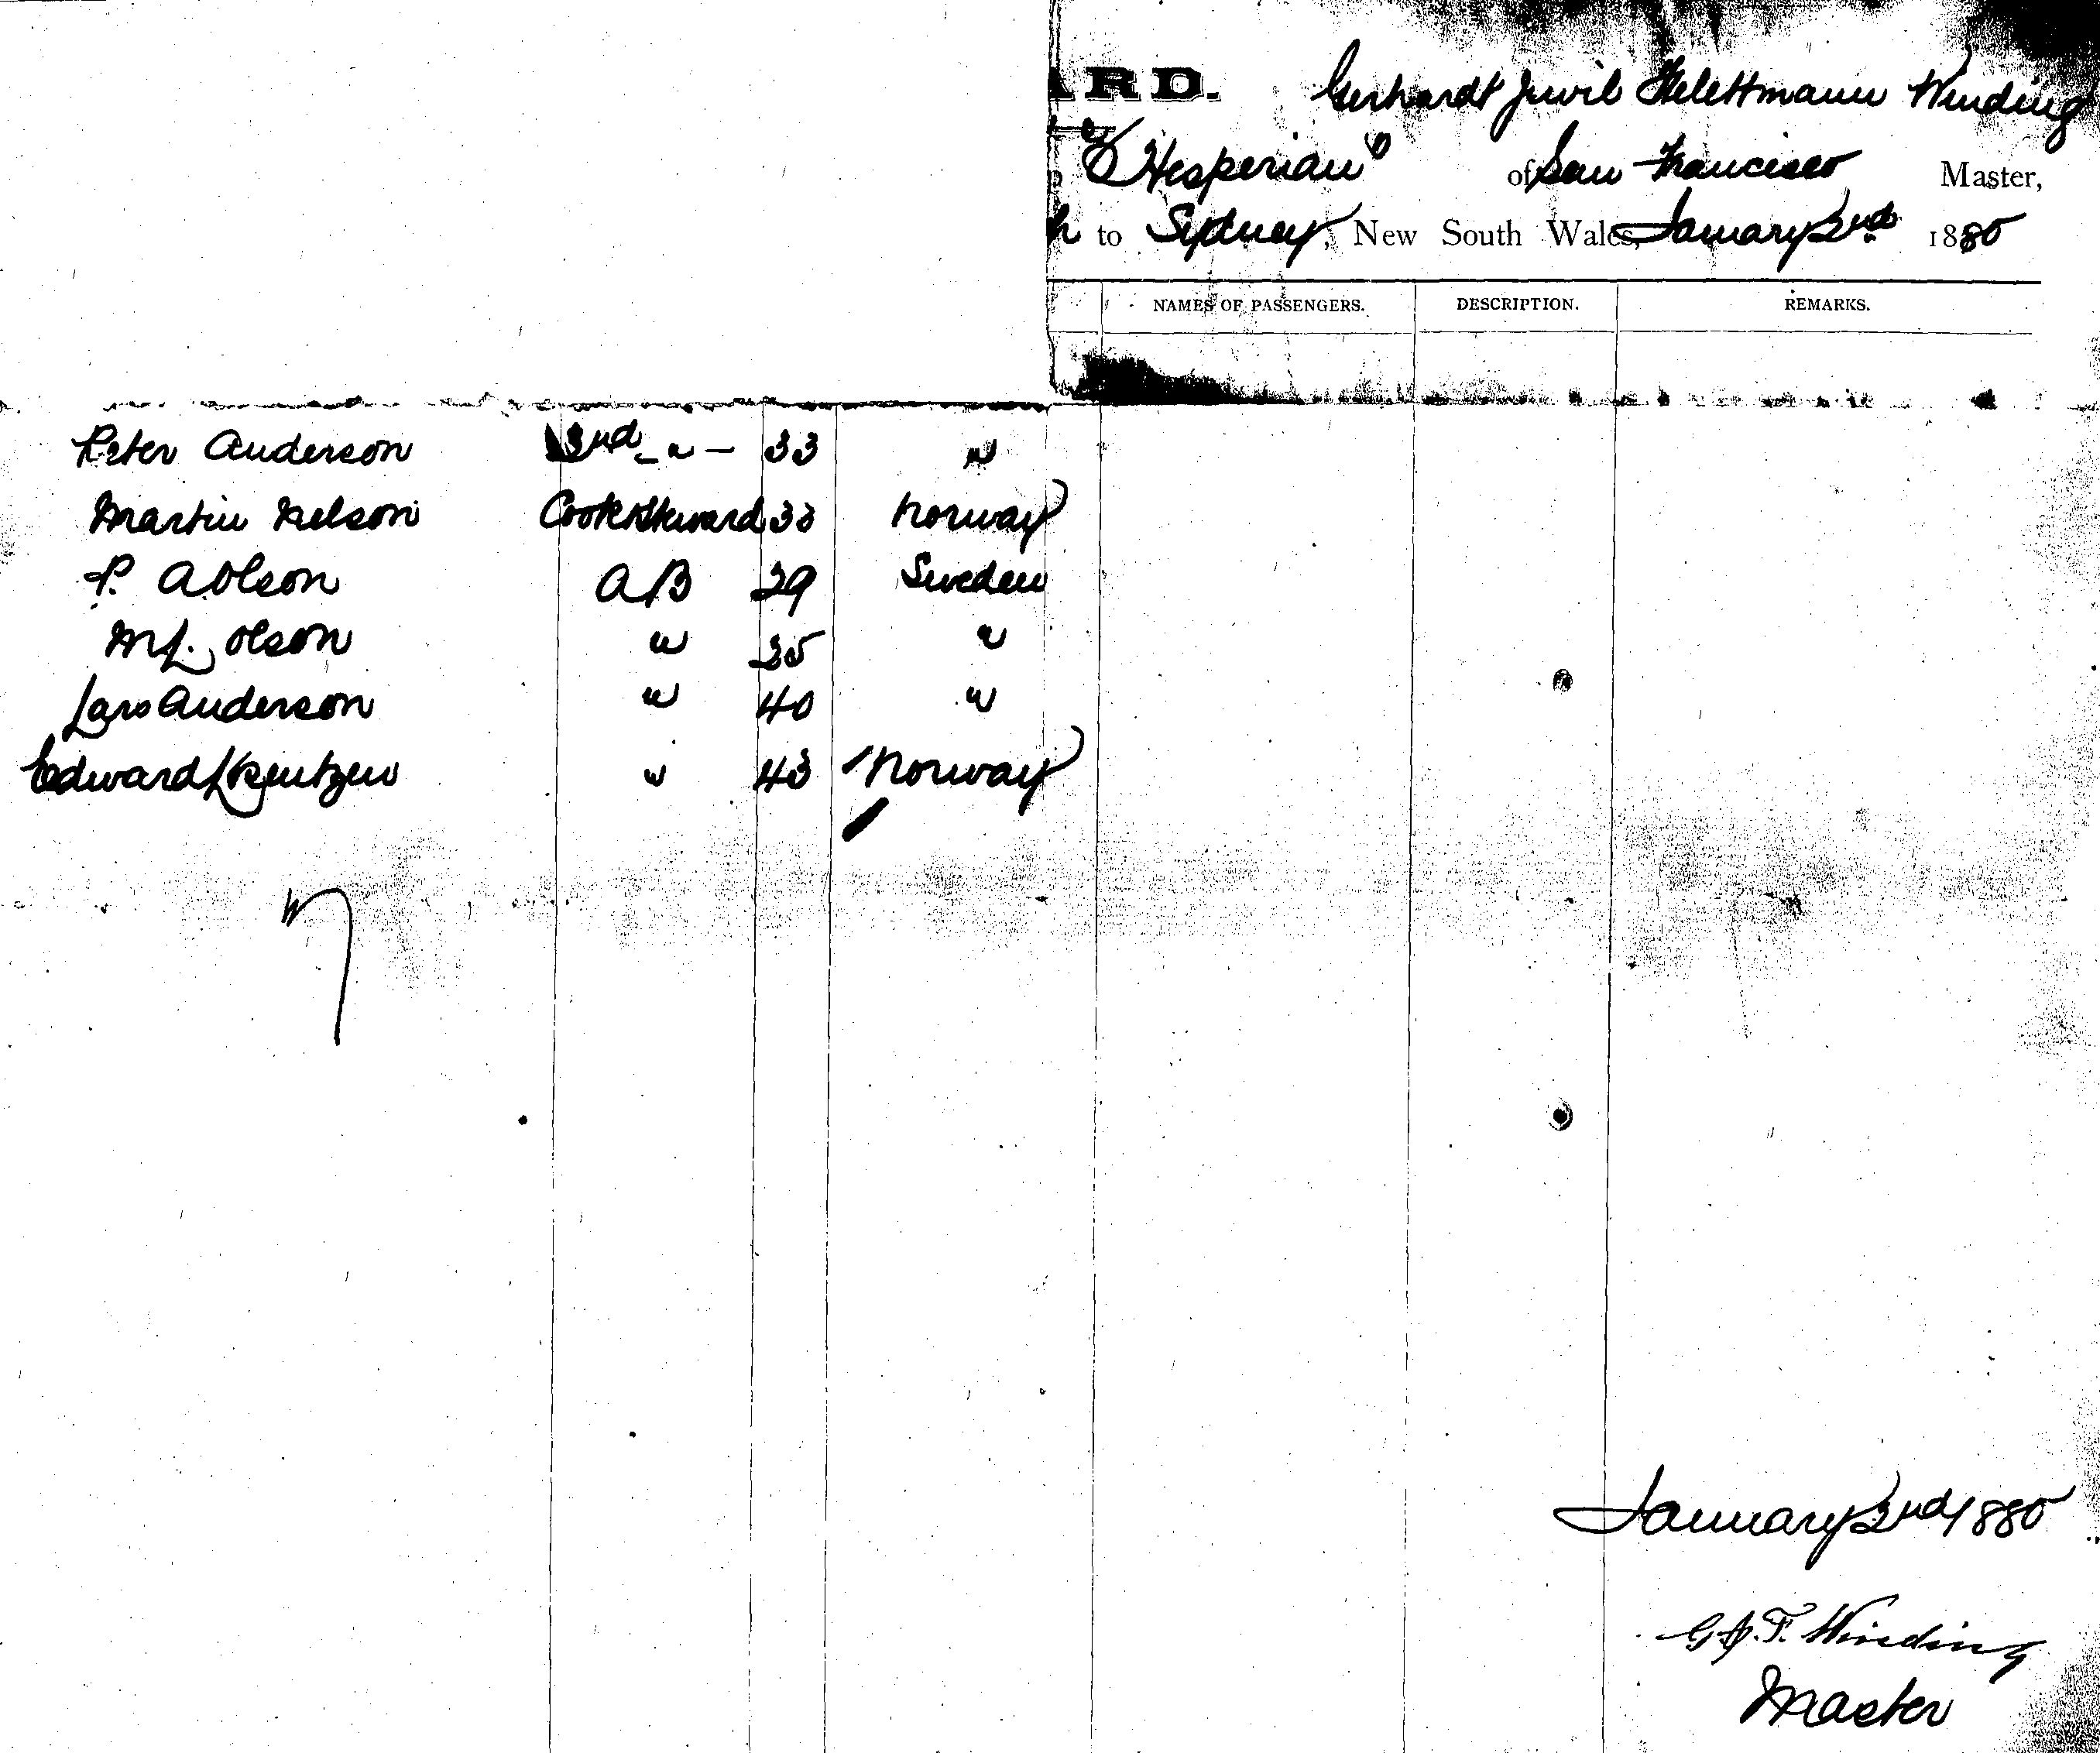 ARD. Gerhardt Winding
"Hesperian" of San Francisco Master,
to Sydney, New South Wales, January 2nd 1880
NAMES OF PASSENGERS. DESCRIPTION. REMARKS.
Peter Anderson 2nd - " - 33 "
Martin Nelson Cook & Steward 33 Norway
P. A Olson AB 29 Sweden
Olson " 25 "
Lars Anderson " 40 "
Edward " 43 Norway
7
January 2nd 1880
Winding
Master